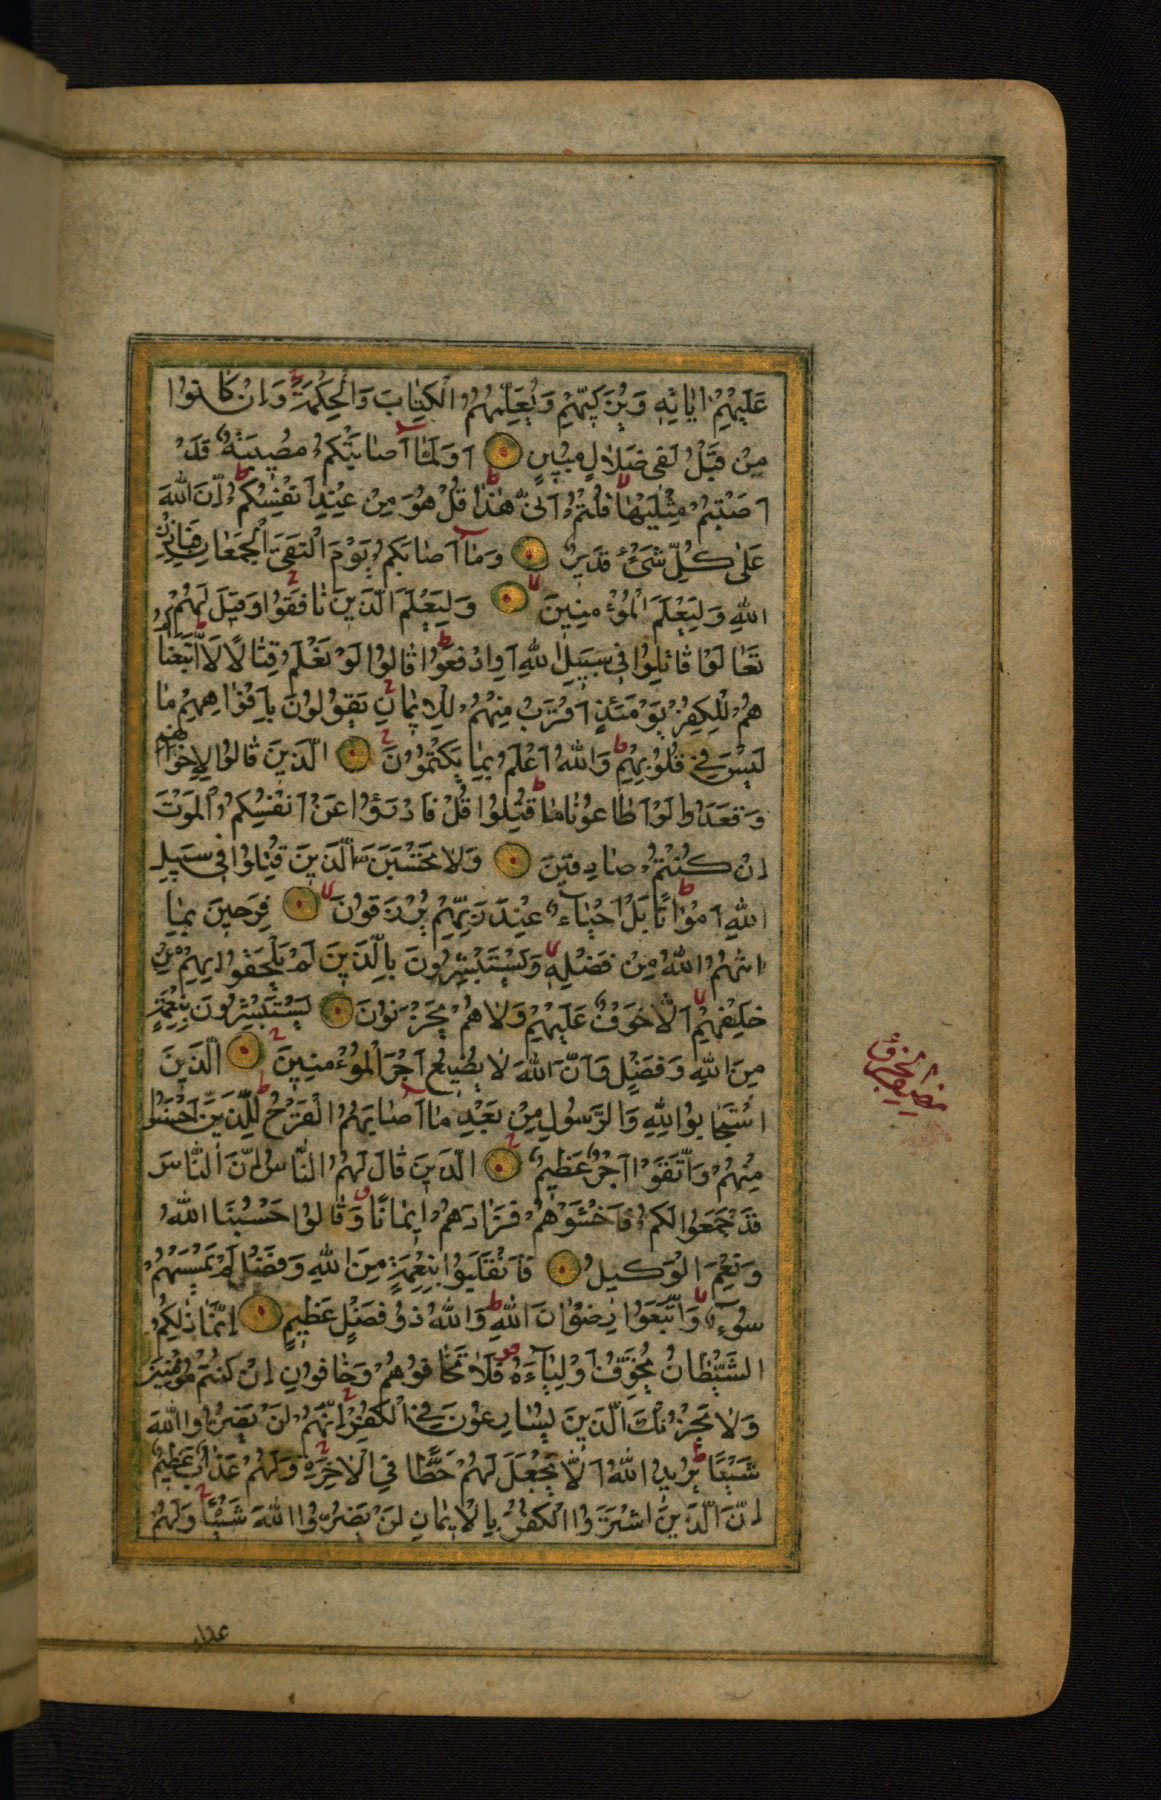 عَلَيْهِمْ اٰيَاتِهٖ وَيُزَكّٖيهِمْ وَيُعَلِّمُهُمُ الْكِتَابَ وَالْحِكْمَةَ وَاِنْ كَانُوا
مِنْ قَبْلُ لَفٖى ضَلَالٍ مُبٖينٍ اَوَلَمَّٓا اَصَابَتْكُمْ مُصٖيبَةٌ قَدْ
اَصَبْتُمْ مِثْلَيْهَا قُلْتُمْ اَنّٰى هٰذَا قُلْ هُوَ مِنْ عِنْدِ اَنْفُسِكُمْ اِنَّ اللّٰهَ
عَلٰى كُلِّ شَیْءٍ قَدٖيرٌ وَمَٓا اَصَابَكُمْ يَوْمَ الْتَقَى الْجَمْعَانِ فَبِاِذْنِ
اللّٰهِ وَلِيَعْلَمَ الْمُؤْمِنٖينَ وَلِيَعْلَمَ الَّذٖينَ نَافَقُوا وَقٖيلَ لَهُمْ
تَعَالَوْا قَاتِلُوا فٖى سَبٖيلِ اللّٰهِ اَوِ ادْفَعُوا قَالُوا لَوْ نَعْلَمُ قِتَالًا لَاتَّبَعْنَاكُمْ
هُمْ لِلْكُفْرِ يَوْمَئِذٍ اَقْرَبُ مِنْهُمْ لِلْاٖيمَانِ يَقُولُونَ بِاَفْوَاهِهِمْ مَا
لَيْسَ فٖى قُلُوبِهِمْ وَاللّٰهُ اَعْلَمُ بِمَا يَكْتُمُونَ اَلَّذٖينَ قَالُوا لِاِخْوَانِهِمْ
وَقَعَدُوا لَوْ اَطَاعُونَا مَا قُتِلُوا قُلْ فَادْرَؤُا عَنْ اَنْفُسِكُمُ الْمَوْتَ
اِنْ كُنْتُمْ صَادِقٖينَ وَلَا تَحْسَبَنَّ الَّذٖينَ قُتِلُوا فٖى سَبٖيلِ
اللّٰهِ اَمْوَاتًا بَلْ اَحْيَٓاءٌ عِنْدَ رَبِّهِمْ يُرْزَقُونَ فَرِحٖينَ بِمَٓا
اٰتٰيهُمُ اللّٰهُ مِنْ فَضْلِهٖ وَيَسْتَبْشِرُونَ بِالَّذٖينَ لَمْ يَلْحَقُوا بِهِمْ مِنْ
خَلْفِهِمْ اَلَّا خَوْفٌ عَلَيْهِمْ وَلَا هُمْ يَحْزَنُونَ يَسْتَبْشِرُونَ بِنِعْمَةٍ
مِنَ اللّٰهِ وَفَضْلٍ وَاَنَّ اللّٰهَ لَا يُضٖيعُ اَجْرَ الْمُؤْمِنٖينَ اَلَّذٖينَ
اسْتَجَابُوا لِلّٰهِ وَالرَّسُولِ مِنْ بَعْدِ مَٓا اَصَابَهُمُ الْقَرْحُ لِلَّذٖينَ اَحْسَنُوا
مِنْهُمْ وَاتَّقَوْا اَجْرٌ عَظٖيمٌ اَلَّذٖينَ قَالَ لَهُمُ النَّاسُ اِنَّ النَّاسَ
قَدْ جَمَعُوا لَكُمْ فَاخْشَوْهُمْ فَزَادَهُمْ اٖيمَانًا وَقَالُوا حَسْبُنَا اللّٰهُ
وَنِعْمَ الْوَكٖيلُ فَانْقَلَبُوا بِنِعْمَةٍ مِنَ اللّٰهِ وَفَضْلٍ لَمْ يَمْسَسْهُمْ
سُوءٌ وَاتَّبَعُوا رِضْوَانَ اللّٰهِ وَاللّٰهُ ذُو فَضْلٍ عَظٖيمٍ اِنَّمَا ذٰلِكُمُ
الشَّيْطَانُ يُخَوِّفُ اَوْلِيَٓاءَهُ فَلَا تَخَافُوهُمْ وَخَافُونِ اِنْ كُنْتُمْ مُؤْمِنٖينَ
وَلَا يَحْزُنْكَ الَّذٖينَ يُسَارِعُونَ فِى الْكُفْرِ اِنَّهُمْ لَنْ يَضُرُّوا اللّٰهَ
شَيْئًا يُرٖيدُ اللّٰهُ اَلَّا يَجْعَلَ لَهُمْ حَظًّا فِى الْاٰخِرَةِ وَلَهُمْ عَذَابٌ عَظٖيمٌ
اِنَّ الَّذٖينَ اشْتَرَوُا الْكُفْرَ بِالْاٖيمَانِ لَنْ يَضُرُّوا اللّٰهَ شَيْئًا وَلَهُمْ
عذاب